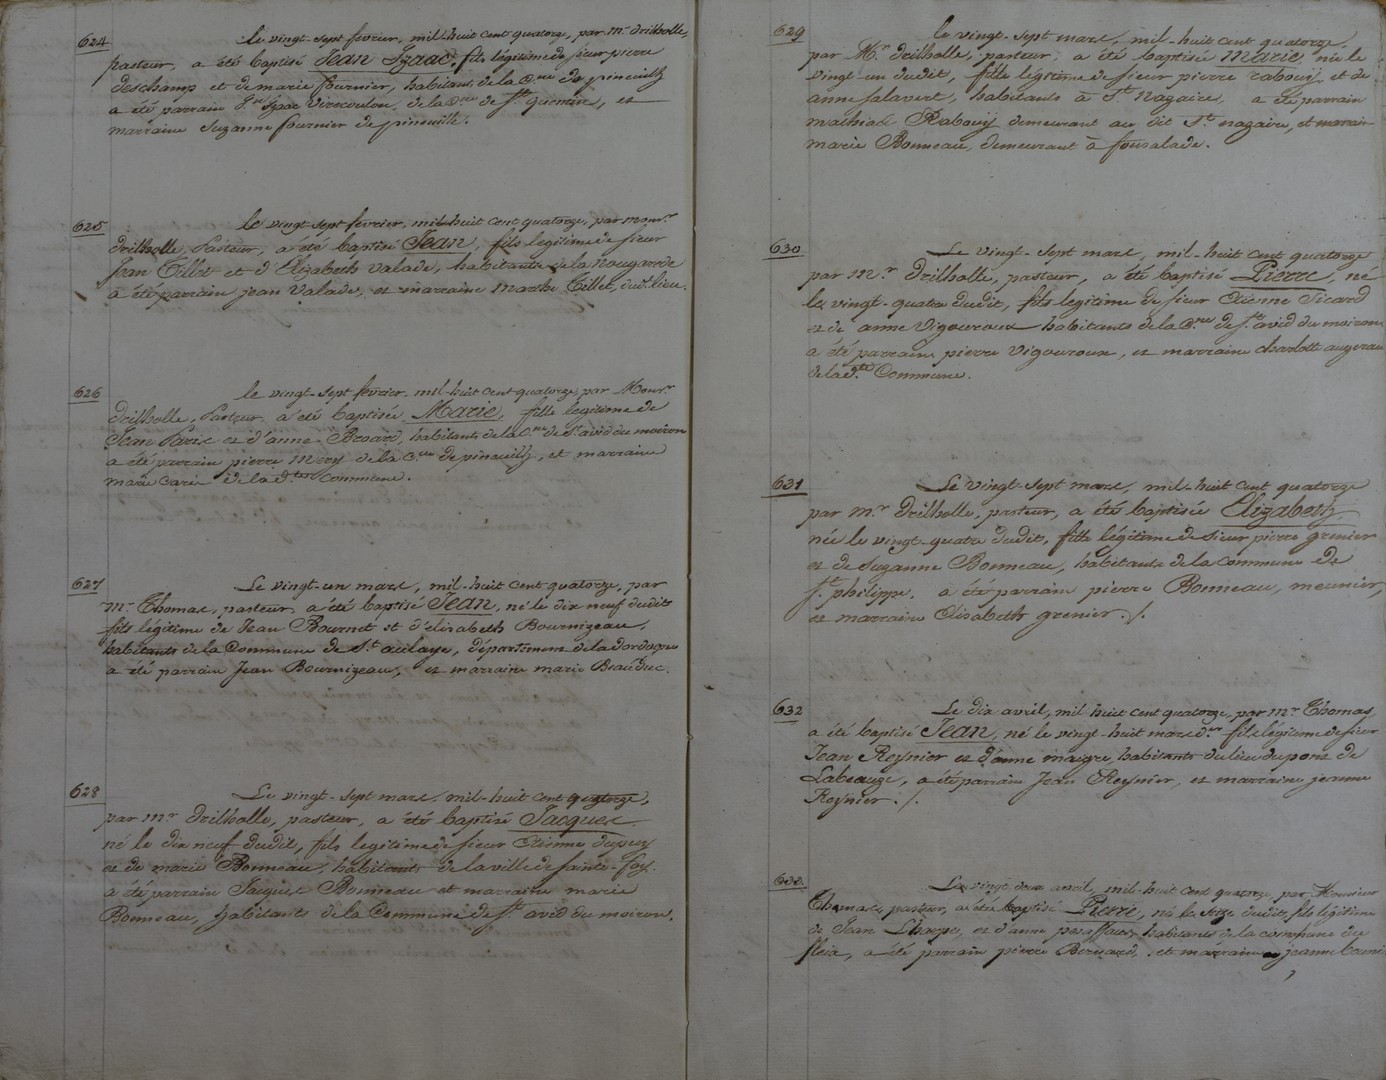 624
Le vingt-sept fevrier, mil-huit cent quatorze, par mr. drilholle,
pasteur, a été baptisé Jean Izaac, fils légitime de sieur pierre
deschamp et de marie fournier, habitans de la Cne de pineuilh
a été parrain Jn Izaac Viroulon, de la Cne de St quentin, et
marraine Suzanne fournier de pineuilh.
625
Le vingt-sept fevrier, mil-huit cent quatorze, par Monsr
drilholle, Pasteur, a été baptisé Jean, fils legitime de sieur
Jean Tillet et d'Elizabeth Valade, habitants de la nougarede
a été parrain jean Valade, et marraine marthe Tillet, du d. lieu.
626
Le vingt-sept fevrier, mil-huit cent quatorze, par Monsr
drilholle, Pasteur, a été baptisée Marie, fille legitime de
Jean Paris et d'anne Broard, habitants de la Cne de St avid du moiron
a été parrain pierre Mery de la Cne de pineuilh, et marraine
marie de la dte commune.
627
Le vingt-un mars, mil-huit cent quatorze, par
mr Thomas, pasteur, a été baptisé Jean, né le dix neuf dudit
fils légitime de Jean Bournet et d'élisabeth Bournizeau,
habitants de la Commune de St aulaye, département de la dordogne
a été parrain Jean Bournizeau, et marraine marie Beauduc.
628
Le vingt-sept mars, mil-huit cent quatorze,
par mr drilholle, pasteur, a été baptisé Jacques
né le dix neuf dudit, fils legitime de sieur Etienne dupuy
et de marie Bonneau, habitants de la ville de Sainte-foy.
a été parrain Jacques Bonneau et marraine marie
Bonneau, habitants de la Commune de St avid du moiron.
629
Le vingt-sept mars, mil-huit cent quatorze,
par Mr drilholle, pasteur, a été baptisée Marie née le
vingt-un dudit, fille légitime de sieur pierre rabouy et de
anne salavert, habitants à St Nazaire, a été parrain
mathias Rabouy demeurant au dit St nazaire, et marrain
marie Bonneau, demeurant à fonsalade.
630
Le vingt-sept mars, mil-huit cent quatorze
par mr drilholle, pasteur, a été baptisé Pierre, né
le vingt-quatre dudit, fils legitime de sieur Etienne Sicard
et de anne Vigouroux habitants de la Cne de St avid du moiron
a été parrain pierre Vigouroux, et marraine charlotte augereau
de la dte Commune.
631
Le vingt-sept mars, mil-huit cent quatorze
par mr drilholle, pasteur, a été baptisée Elizabeth,
née le vingt-quatre dudit, fille légitime de sieur pierre grenier
et de Suzanne Bonneau, habitants de la commune de
St philippe. a été parrain pierre Bonneau, meunier,
et marraine Elisabeth grenier ./.
632
Le dix avril, mil huit cent quatorze, par mr Thomas
a été baptisé Jean, né le vingt-huit mars der fils légitime de sieur
Jean Reynier et d'anne maigre, habitants du lieu du pont de
Labeauze, a été parrain Jean Reynier, et marraine jeanne
Reynier ./.
633
Le vingt deux avril, mil-huit cent quatorze, par Monsieur
Thomas, pasteur, a été baptisé Pierre, né le seize dudit, fils légitime
de Jean et d'anne habitants de la commune du
fleix, a été parrain pierre Bernard, et marraine jeanne